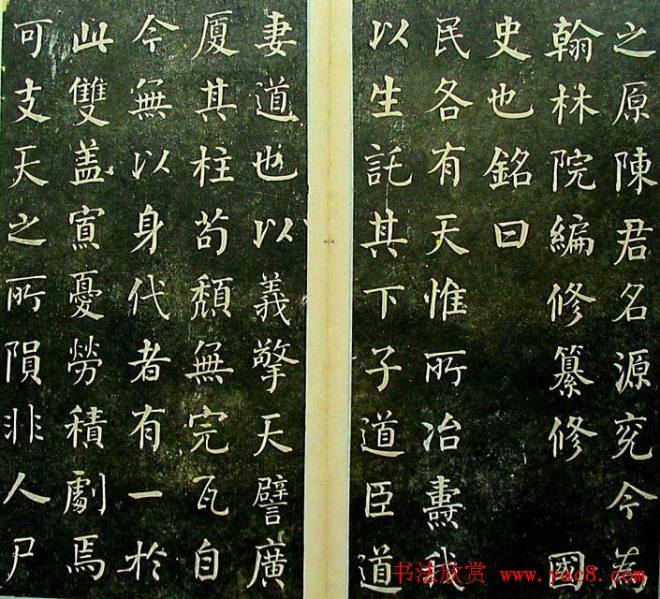 之原陳君名源兖今為
翰林院編修纂修 國
史也銘曰
民各有天惟所冶燾我
以生託其下子道臣道
妻道也以義擎天譬廣
厦其柱苟頽無完瓦自
今無以身代者有一於
此雙盖寘憂勞積劇焉
可支天之所隕非人尸
书法欣赏 www.yac8.com